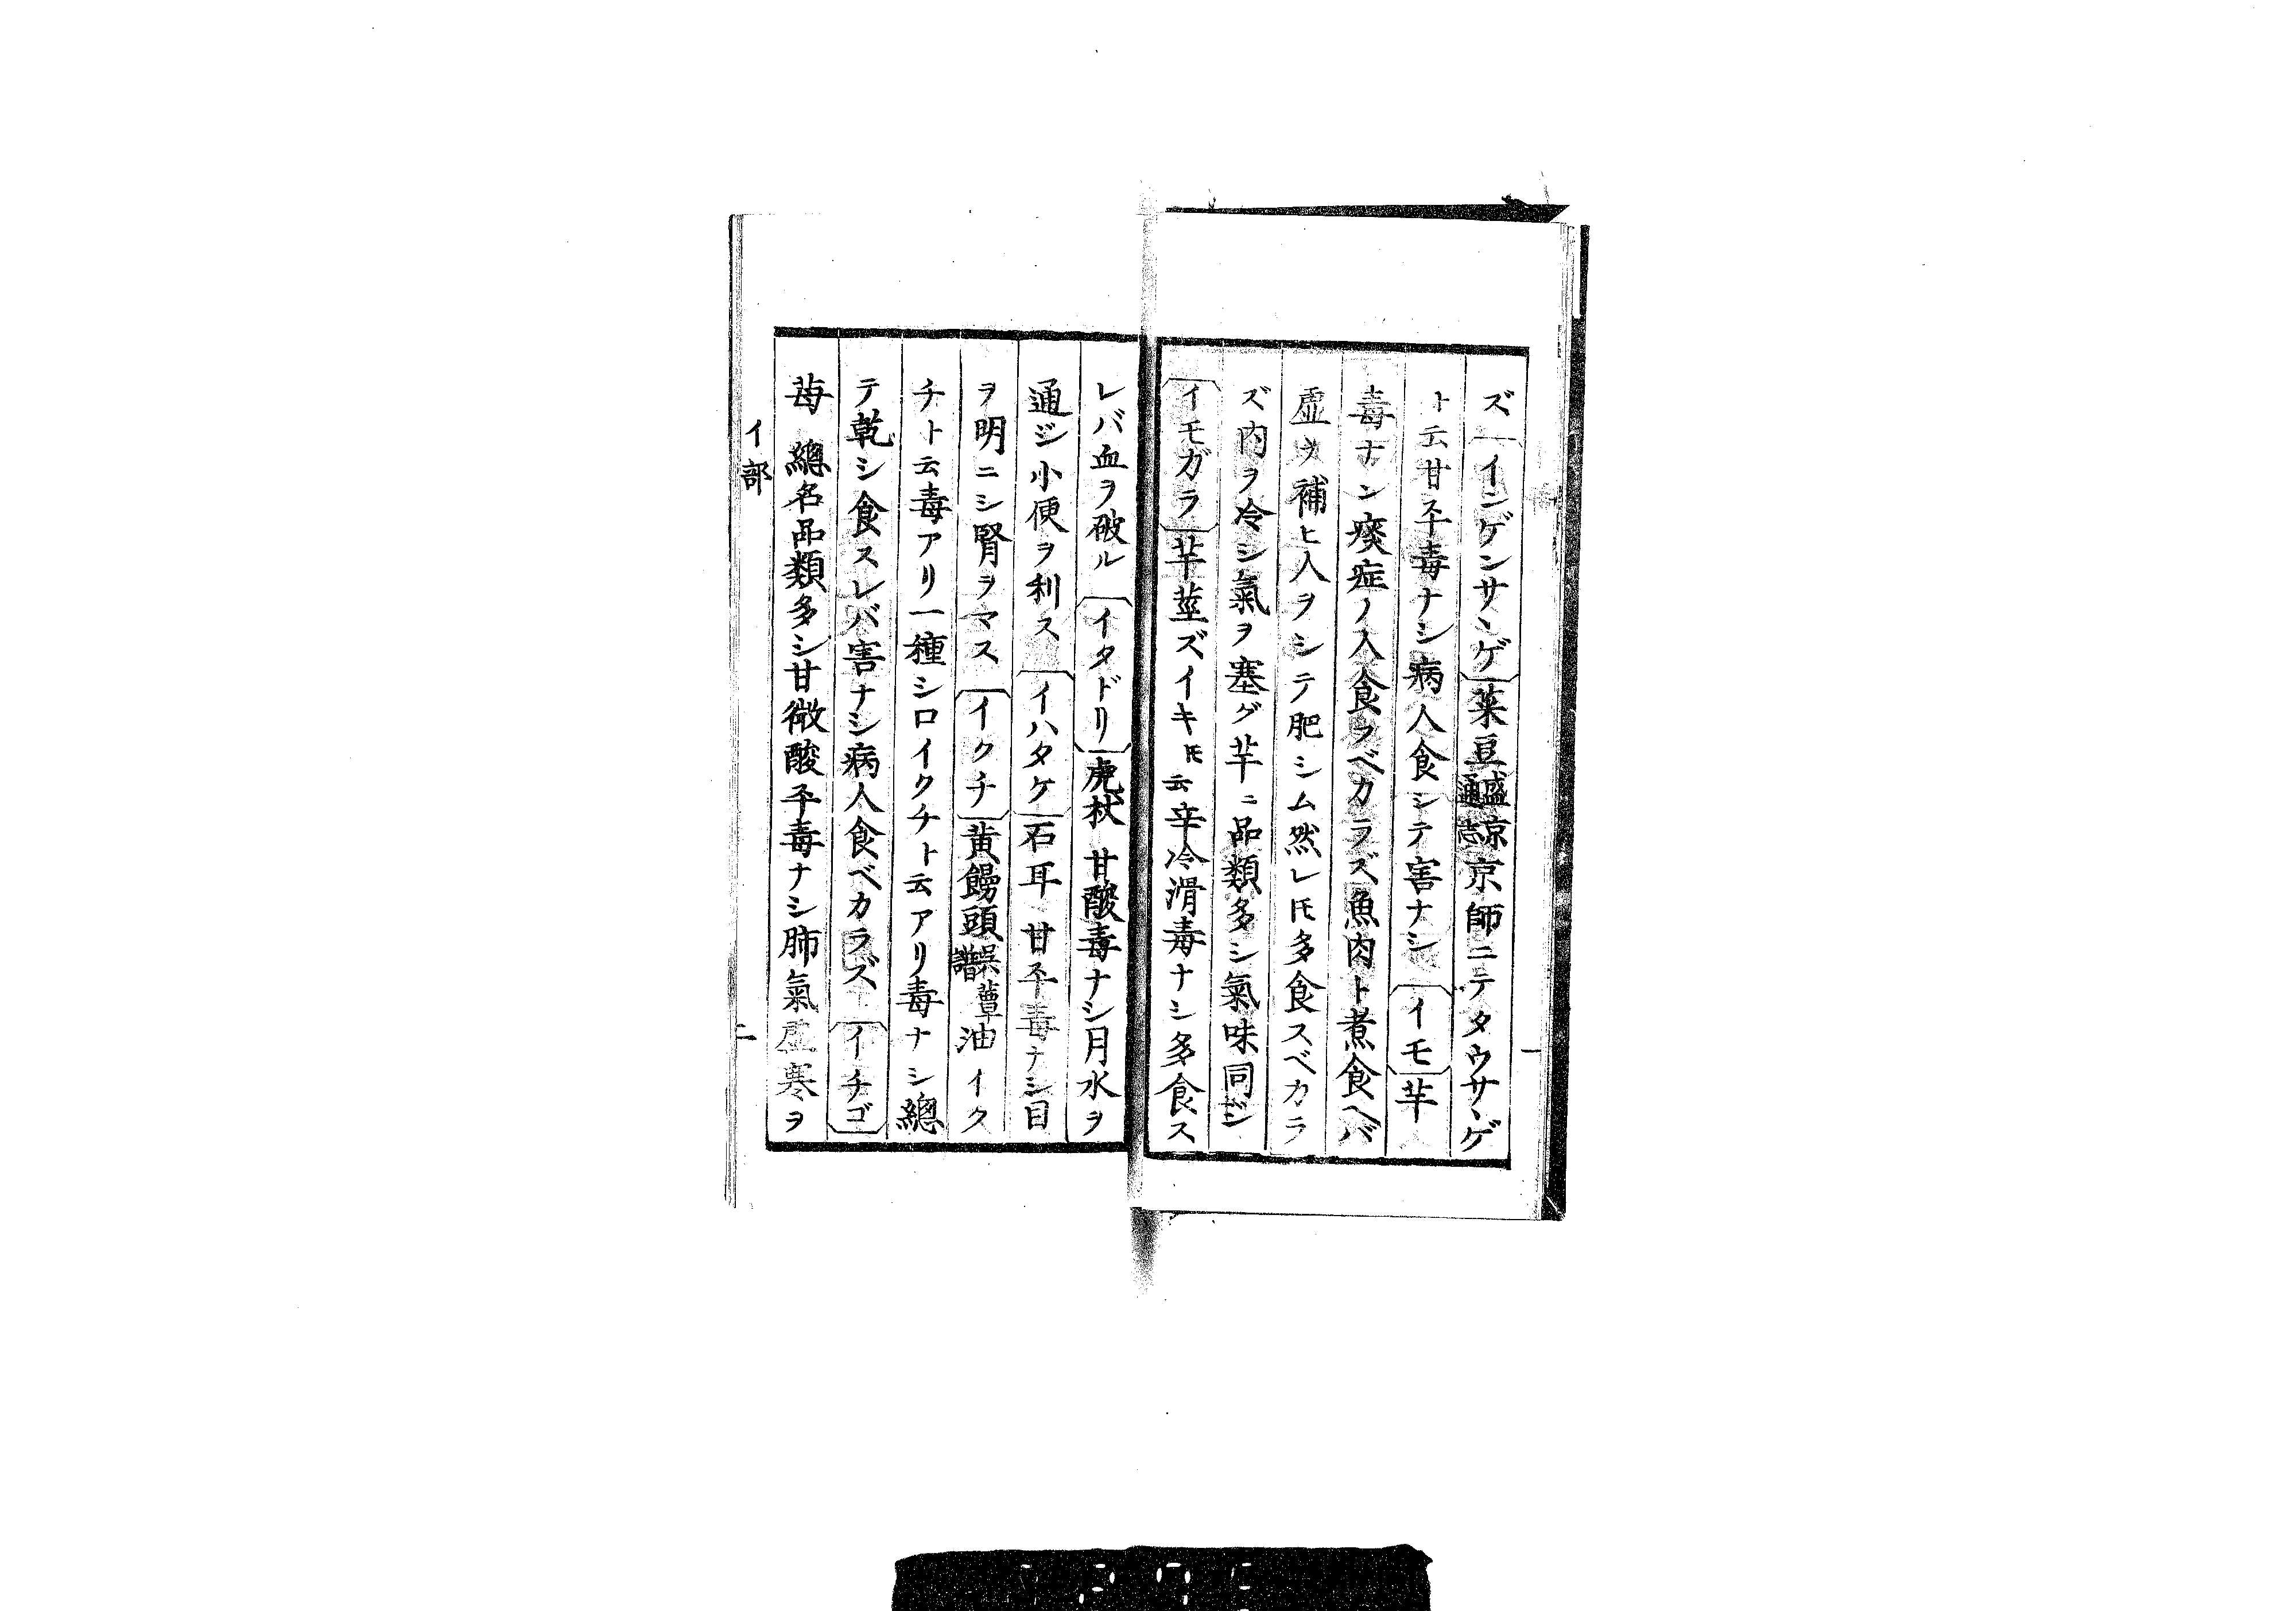 ズ〔インゲンサヽゲ〕菜豆盛京通志京師ニテタウサヽゲ
ト云甘平毒ナシ病人食シテ害ナシ〔イモ〕芋
毒ナシ痰症ノ人食フベカラズ魚肉ト煮食ヘバ
虚ヲ補ヒ人ヲシテ肥シム然レ𪜈多食スベカラ
ズ内ヲ冷シ氣ヲ塞グ芋ニ品類多シ氣味同ジ
〔イモガラ〕芋莖ズイキ𪜈云辛冷滑毒ナシ多食ス
一
レバ血ヲ破ル〔イタドリ〕虎杖甘酸毒ナシ月水ヲ
通ジ小便ヲ利ス〔イハタケ〕石耳甘平毒ナシ目
ヲ明ニシ腎ヲマス〔イクチ〕黄饅頭呉蕈譜油イク
チト云毒アリ一種シロイクチト云アリ毒ナシ總
テ乾シ食スレバ害ナシ病人食ベカラズ〔イチゴ〕
苺總名品類多シ甘微酸平毒ナシ肺氣虚寒ヲ
イ部
二